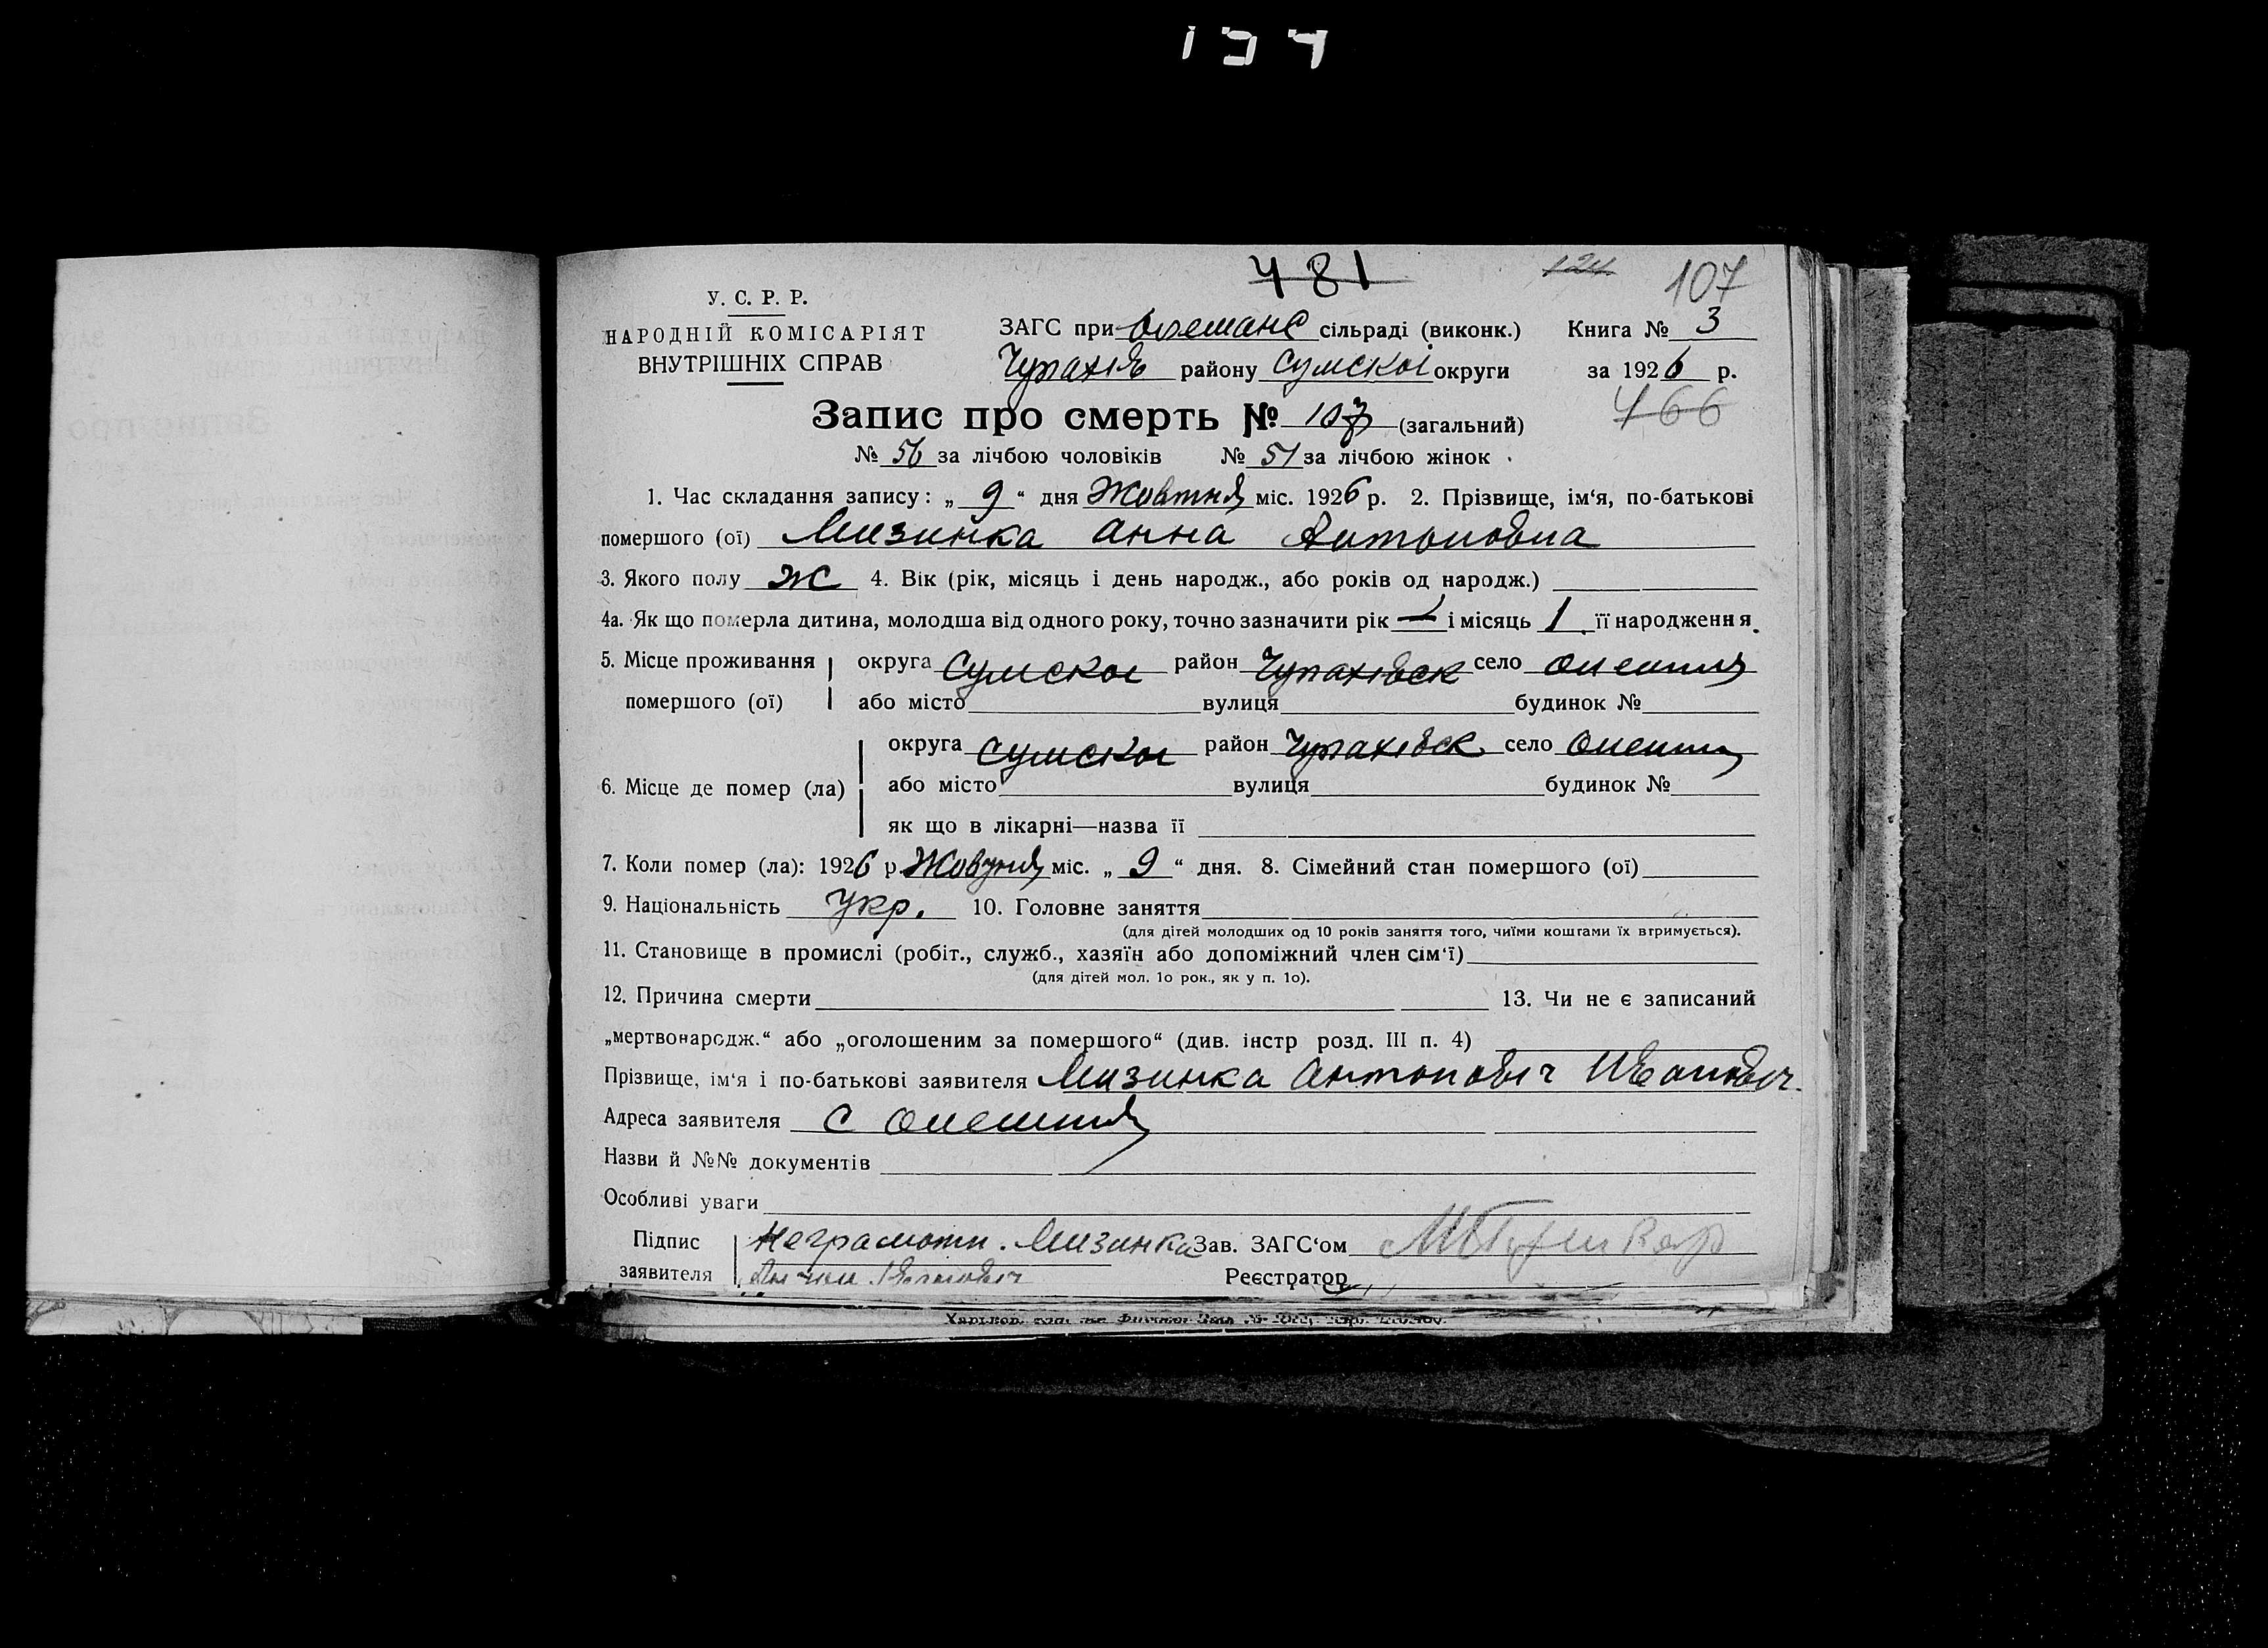 481 124 107
У. С. Р. Р.
НАРОДНІЙ КОМІСАРІЯТ
ВНУТРІШНІХ СПРАВ
ЗАГС при сільраді (виконк.) Книга № 3
Чупахів району Сумской округи за 1926 р.
Запис про смерть № 107 (загальний) 466
№ 56 за лічбою чоловіків № 51 за лічбою жінок
1. Час складання запису: „ 9 “ дня Жовтня міс. 1926 р. 2. Прізвище, ім‘я, по-батькові
помершого (ої) Мизинка Анна Антоновна
3. Якого полу Ж 4. Вік (рік, місяць і день народж., або років од народж.)
4а. Як що померла дитина, молодша від одного року, точно зазначити рік — і місяць 1 її народження.
5. Місце проживання округа Сумской район Чупахівск село Олешня
помершого (ої) або місто вулиця будинок №
округа Сумской район Чупахівск село Олешня
6. Місце де помер (ла) або місто вулиця будинок №
як що в лікарні—назва її
7. Коли помер (ла): 1926 р. Жовтня міс. „ 9 “ дня. 8. Сімейний стан помершого (ої)
9. Національність Укр. 10. Головне заняття
(для дітей молодших од 10 років заняття того, чиїми коштами їх втримується).
11. Становище в промислі (робіт., служб., хазяїн або допоміжний член сім‘ї)
(для дітей мол. 1о рок., як у п. 1о).
12. Причина смерти 13. Чи не є записаний
„мертвонародж.“ або „оголошеним за помершого“ (див. інстр розд. III п. 4)
Прізвище, ім‘я і по-батькові заявителя Мизинка Антонович Иванович.
Адреса заявителя С Олешня
Назви й №№ документів
Особливі уваги
Підпис Неграмотн. Мизинка Зав. ЗАГС‘ом
заявителя Иванович Реєстратор